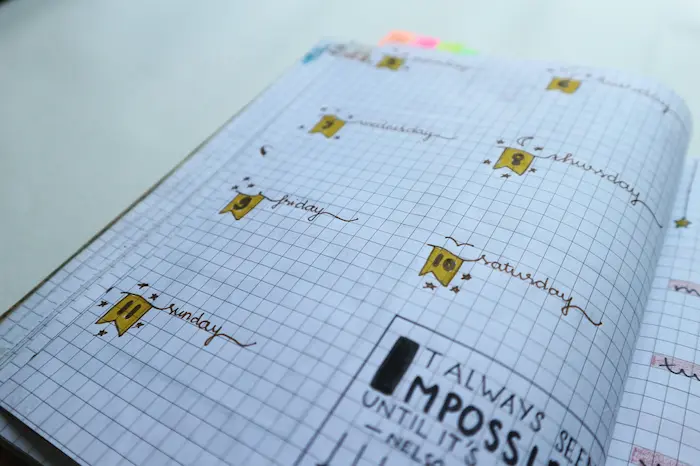 6
7 wednesday
8 thursday
9 friday
10 saturday
11 sunday
IT ALWAYS SEE
MPOSSI
UNTIL IT'S
—NELSO